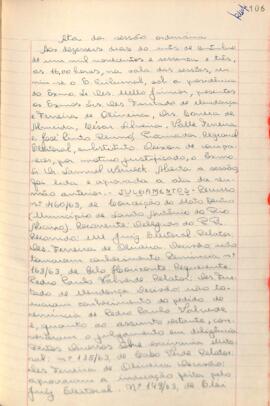 106
Ata da sessão ordinária
Aos dezesseis dias do mês de outubro
de um mil novecentos e sessenta e três,
às 16,00 horas, na sala das sessões, reu
niu-se o Tribunal, sob a presidência
do Exmo Sr. Des. Mello Júnior, presentes
os Exmos Srs. Des. Furtado de Mendonça
e Ferreira de Oliveira, Drs. Corrêa de
Almeida, César Silveira, Valle Ferreira
e José Procurador Regional
Eleitoral, substituto. Deixou de compa-
recer, por motivo justificado, o Exmo
Sr. Dr. Samuel Aberta a sessão
foi lida e aprovada a ata da reu
nião anterior. JULGAMENTOS: Recurso
nº 460/63, de Conceição do Mato Dentro
(Município de Santo Antônio do Rio
Abaixo). Recorrente: Delegado do P.R.
Recorrido: MM. Juiz Eleitoral. Relator:
Des. Ferreira de Oliveira. Decisão: não
tomaram conhecimento. Renúncia nº
163/63, de Belo Horizonte. Requerente:
Pedro Paulo Valverde. Relator: Des. Fur
tado de Mendonça. Decisão: não to
maram conhecimento do pedido de
renúncia de Pedro Paulo Valverde
e, quanto ao assunto restante, con
verteram o julgamento em diligência.
nº 135/63, de Cabo Verde. Relator:
Des. Ferreira de Oliveira. Decisão:
aprovaram a indicação feita pelo
Juiz Eleitoral. Nº 149/63, de